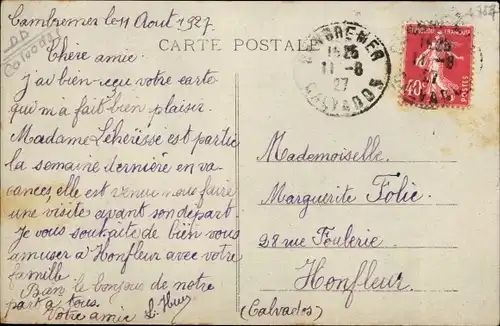 Cambremer le 11 Août 1927
CARTE POSTALE
CAMBREMER
1525
11-8
27
CALVADOS
40
POSTES
DD
(Calvados)
Chère amie
J'ai bien reçu votre carte
qui m'a fait bien plaisir.
Madame Lehérissé est partie
la semaine dernière en va-
cances, elle est venu nous faire
une visite avant son départ.
Je vous souhaite de bien vous
amuser à Honfleur avec votre
famille.
Bien le bonjour de notre
part à tous.
Votre amie
Mademoiselle
Marguerite Folie
28 rue Foulerie
Honfleur
(Calvados)